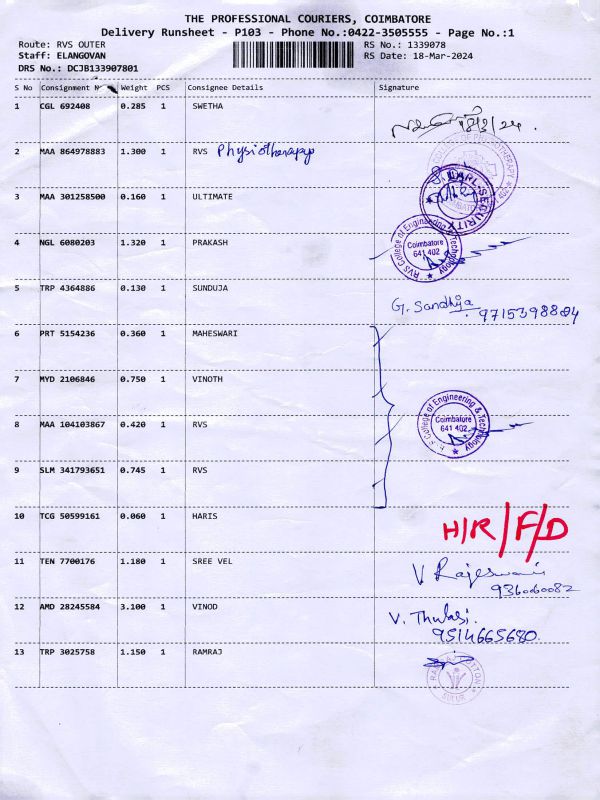 THE PROFESSIONAL COURIERS, COIMBATORE
Delivery Runsheet - P103 - Phone No.:0422-3505555 - Page No.:1
Route: RVS OUTER RS No.: 1339078
Staff: ELANGOVAN RS Date: 18-Mar-2024
DRS No.: DCJB133907801
S No Consignment Weight PCS Consignee Details Signature
1 CGL 692408 0.285 1 SWETHA
18/3/24.
2 MAA 864978883 1.300 1 RVS Physiotherapy
3 MAA 301258500 0.160 1 ULTIMATE
SECURITY
4 NGL 6080203 1.320 1 PRAKASH
RVS College of Engineering & Technology
Coimbatore
641 402
5 TRP 4364886 0.130 1 SUNDUJA
G. Sandhija
6 PRT 5154236 0.360 1 MAHESWARI
7 MYD 2106846 0.750 1 VINOTH
8 MAA 104103867 0.420 1 RVS
College of Engineering & Technology
Coimbatore
641 402
9 SLM 341793651 0.745 1 RVS
10 TCG 50599161 0.060 1 HARIS
H/R/F/D
11 TEN 7700176 1.180 1 SREE VEL
V Rajeswari
12 AMD 28245584 3.100 1 VINOD
V. Thulasi.
9514665680
13 TRP 3025758 1.150 1 RAMRAJ
SULUR